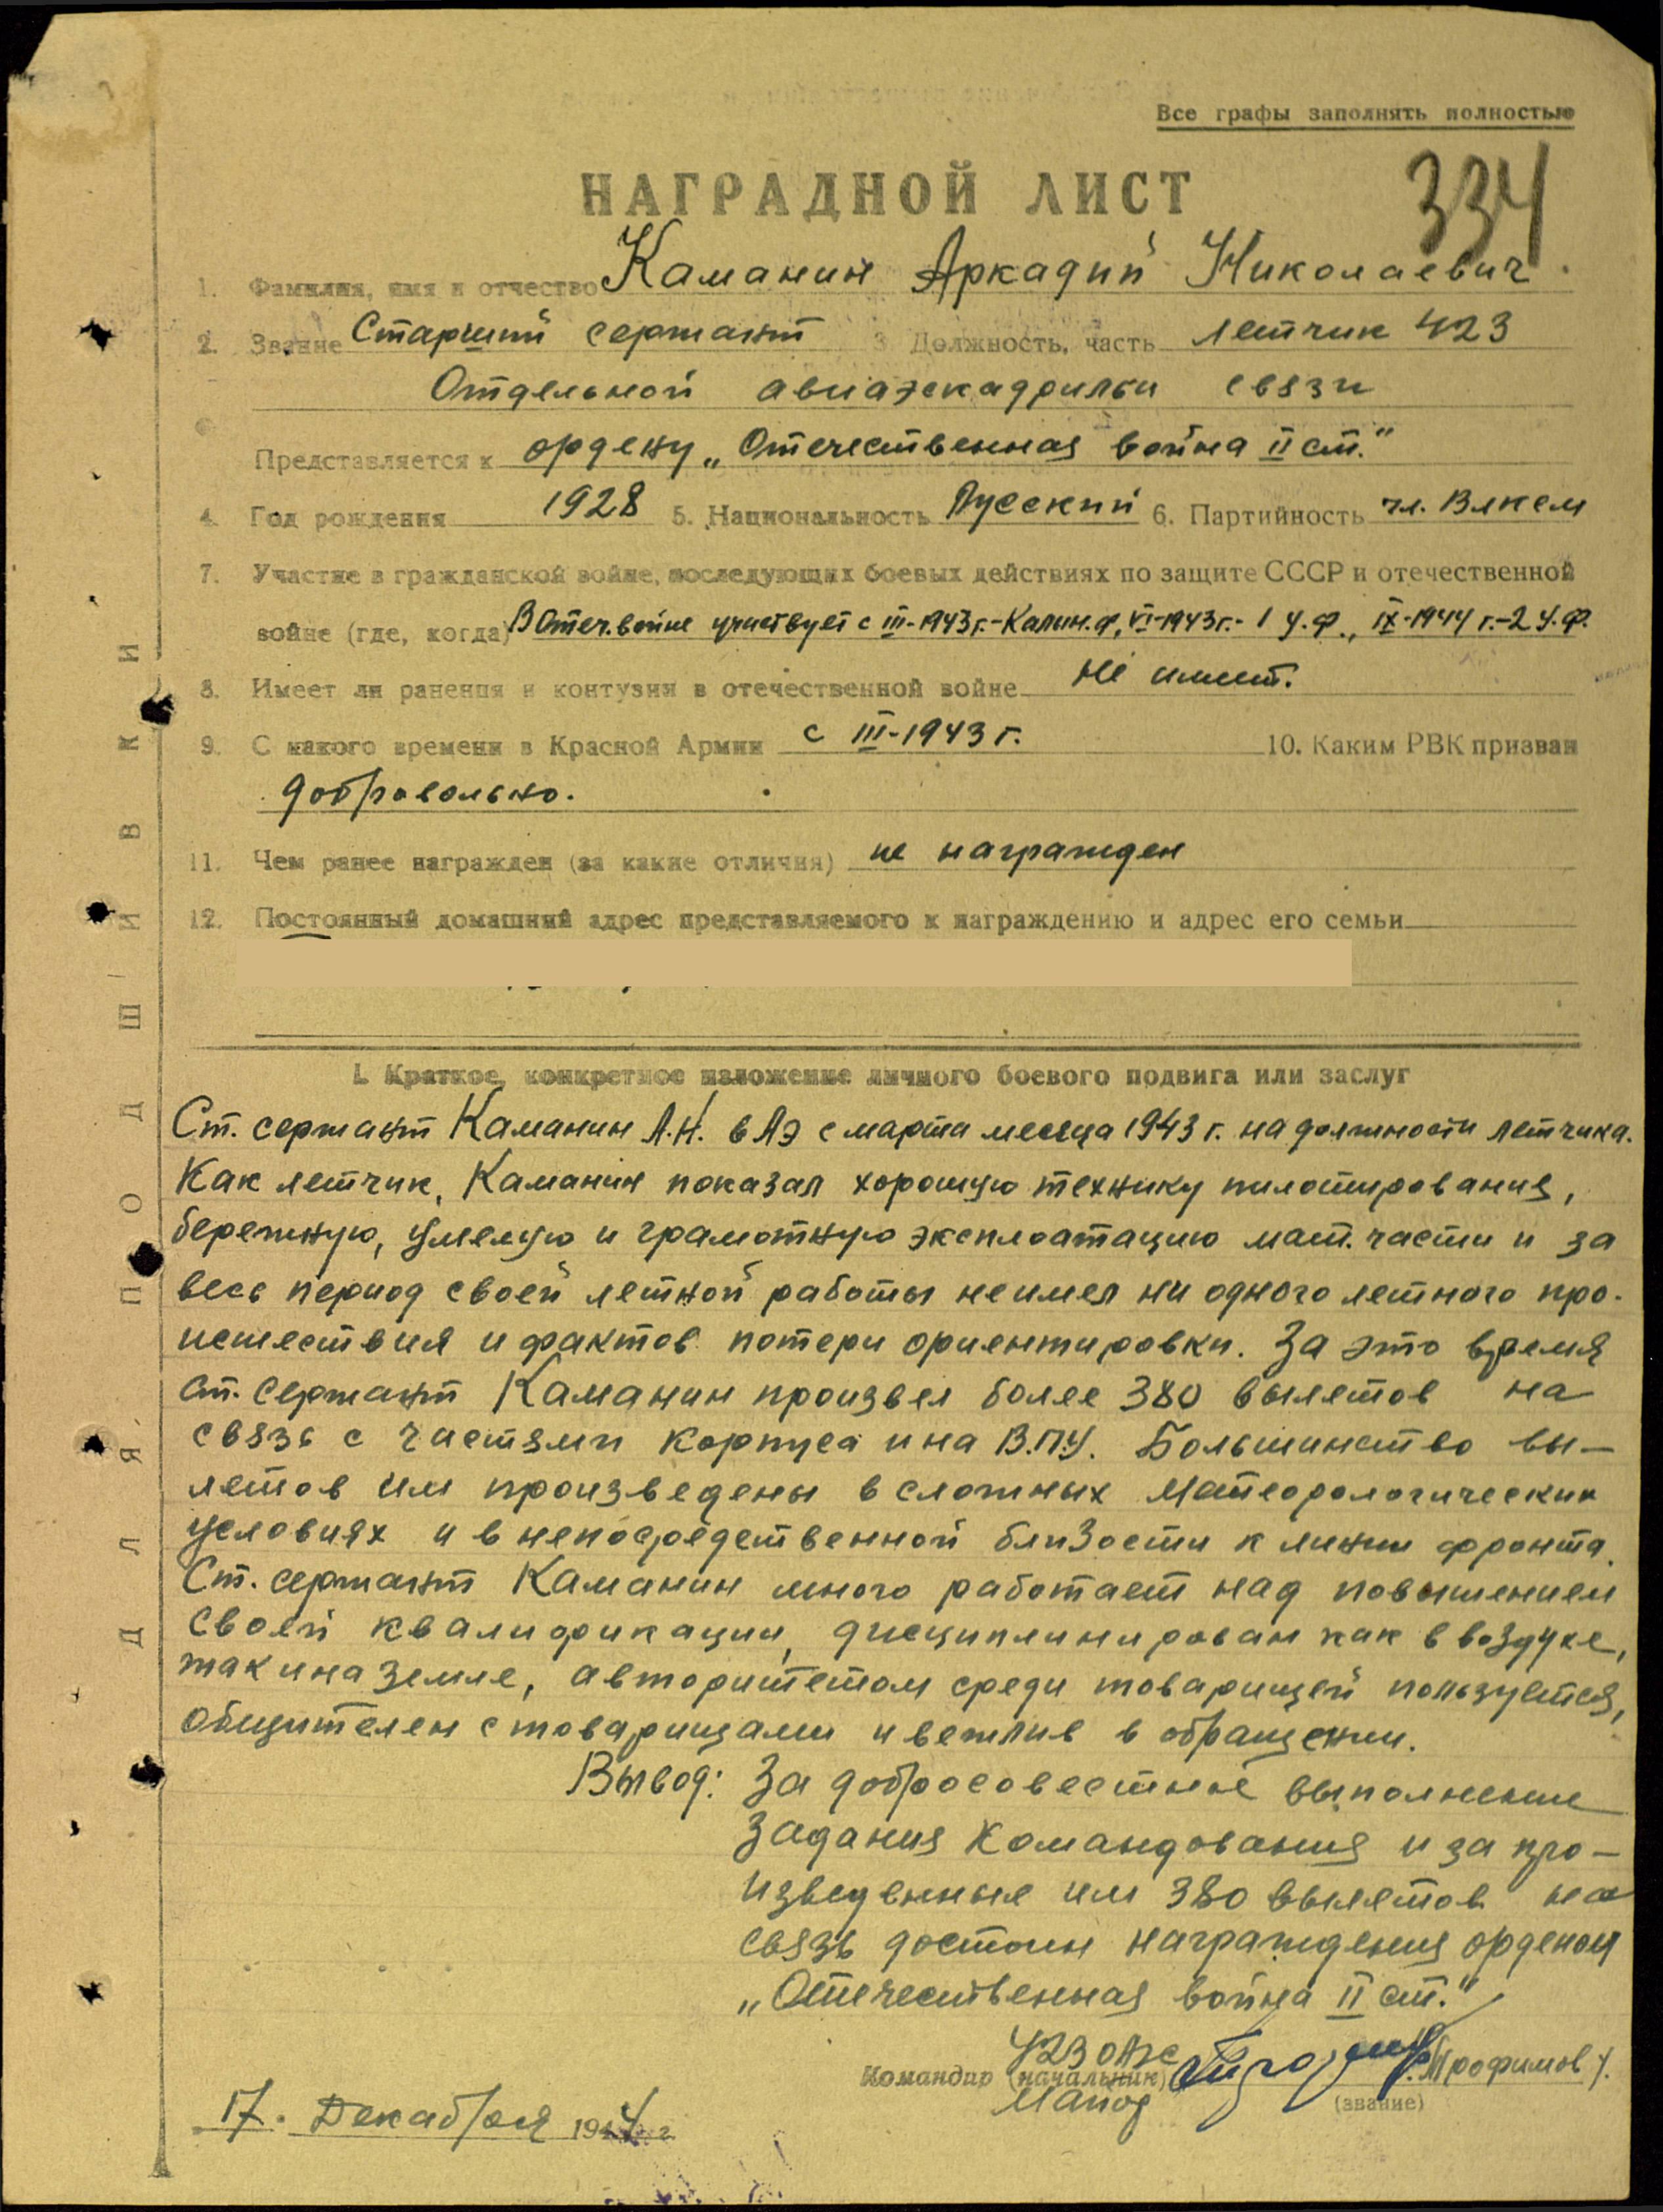 Все графы заполнять полностью
334
НАГРАДНОЙ ЛИСТ
1. Фамилия, имя и отчество Каманин Аркадий Николаевич.
2. Звание Старший сержант 3 Должность, часть летчик 423
Отдельной авиаэскадрильи связи
Представляется к ордену „Отечественная война II ст."
4. Год рождения 1928 5. Национальность Русский 6. Партийность чл. Влксм
7. Участие в гражданской войне, последующих боевых действиях по защите СССР и отечественной
войне (где, когда) В Отеч. войне участвует с III-1943г.-Калин.ф, VI-1943г.- 1 У.Ф., IX-1944 г.-2 У.Ф.
8. Имеет ли ранения и контузии в отечественной войне не имеет.
9. С какого времени в Красной Армии с III-1943 г. 10. Каким РВК призван
добровольно.
11. Чем ранее награжден (за какие отличия) не награжден
12. Постоянный домашний адрес представляемого к награждению и адрес его семьи
I. Краткое, конкретное изложение личного боевого подвига или заслуг
Ст. сержант Каманин А.Н. в АЭ с марта месяца 1943 г. на должности летчика.
Как летчик, Каманин показал хорошую технику пилотирования,
бережную, умелую и грамотную эксплоатацию мат. части и за
весь период своей летной работы не имел ни одного летного про-
исшествия и фактов потери ориентировки. За это время
ст. сержант Каманин произвел более 380 вылетов на
связь с частями корпуса и на В.П.У. Большинство вы-
летов им произведены в сложных матеорологических
условиях и в непосредственной близости к линии фронта.
Ст. сержант Каманин много работает над повышением
своей квалификации, дисциплинирован как в воздухе,
так и на земле, авторитетом среди товарищей пользуется,
общителен с товарищами и вежлив в обращении.
Вывод: За добросовестное выполнение
задания командования и за про-
изведенные им 380 вылетов на
связь достоин награждения орденом
„Отечественная война II ст."
423 оАэс
Командир (начальник) Трофимов
Майор (звание)
17. Декабря 1944 г.
ДЛЯ ПОДШИВКИ